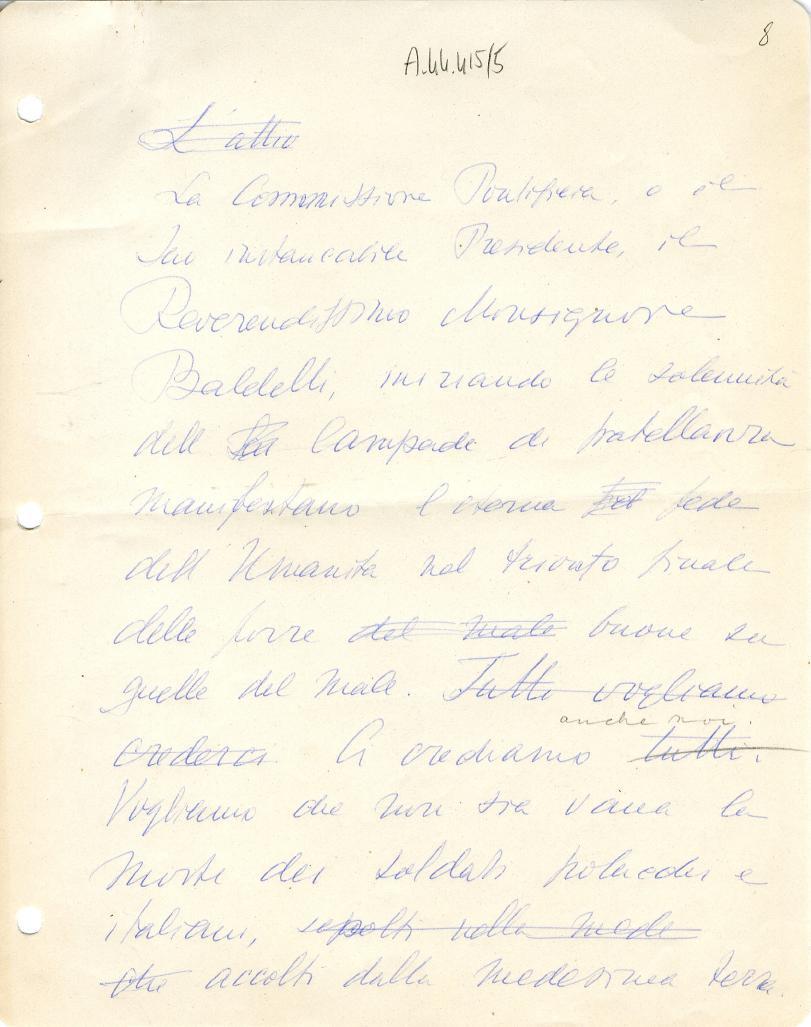 8
A.44.415/5
L'atto
La Commissione Pontificia, e il
suo instancabile Presidente, il
Reverendissimo Monsignore
Baldelli, iniziando la solennità
dell Lampade di fratellanza
manifestano l'eterna fede
dell'Umanità nel trionfo finale
delle forze del male buone su
quelle del male. Tutti vogliamo
anche noi.
crederci. Ci crediamo tutti.
Vogliamo che non sia vana la
morte dei soldati polacchi e
italiani, sepolti nella mede
che accolti dalla medesima terra.